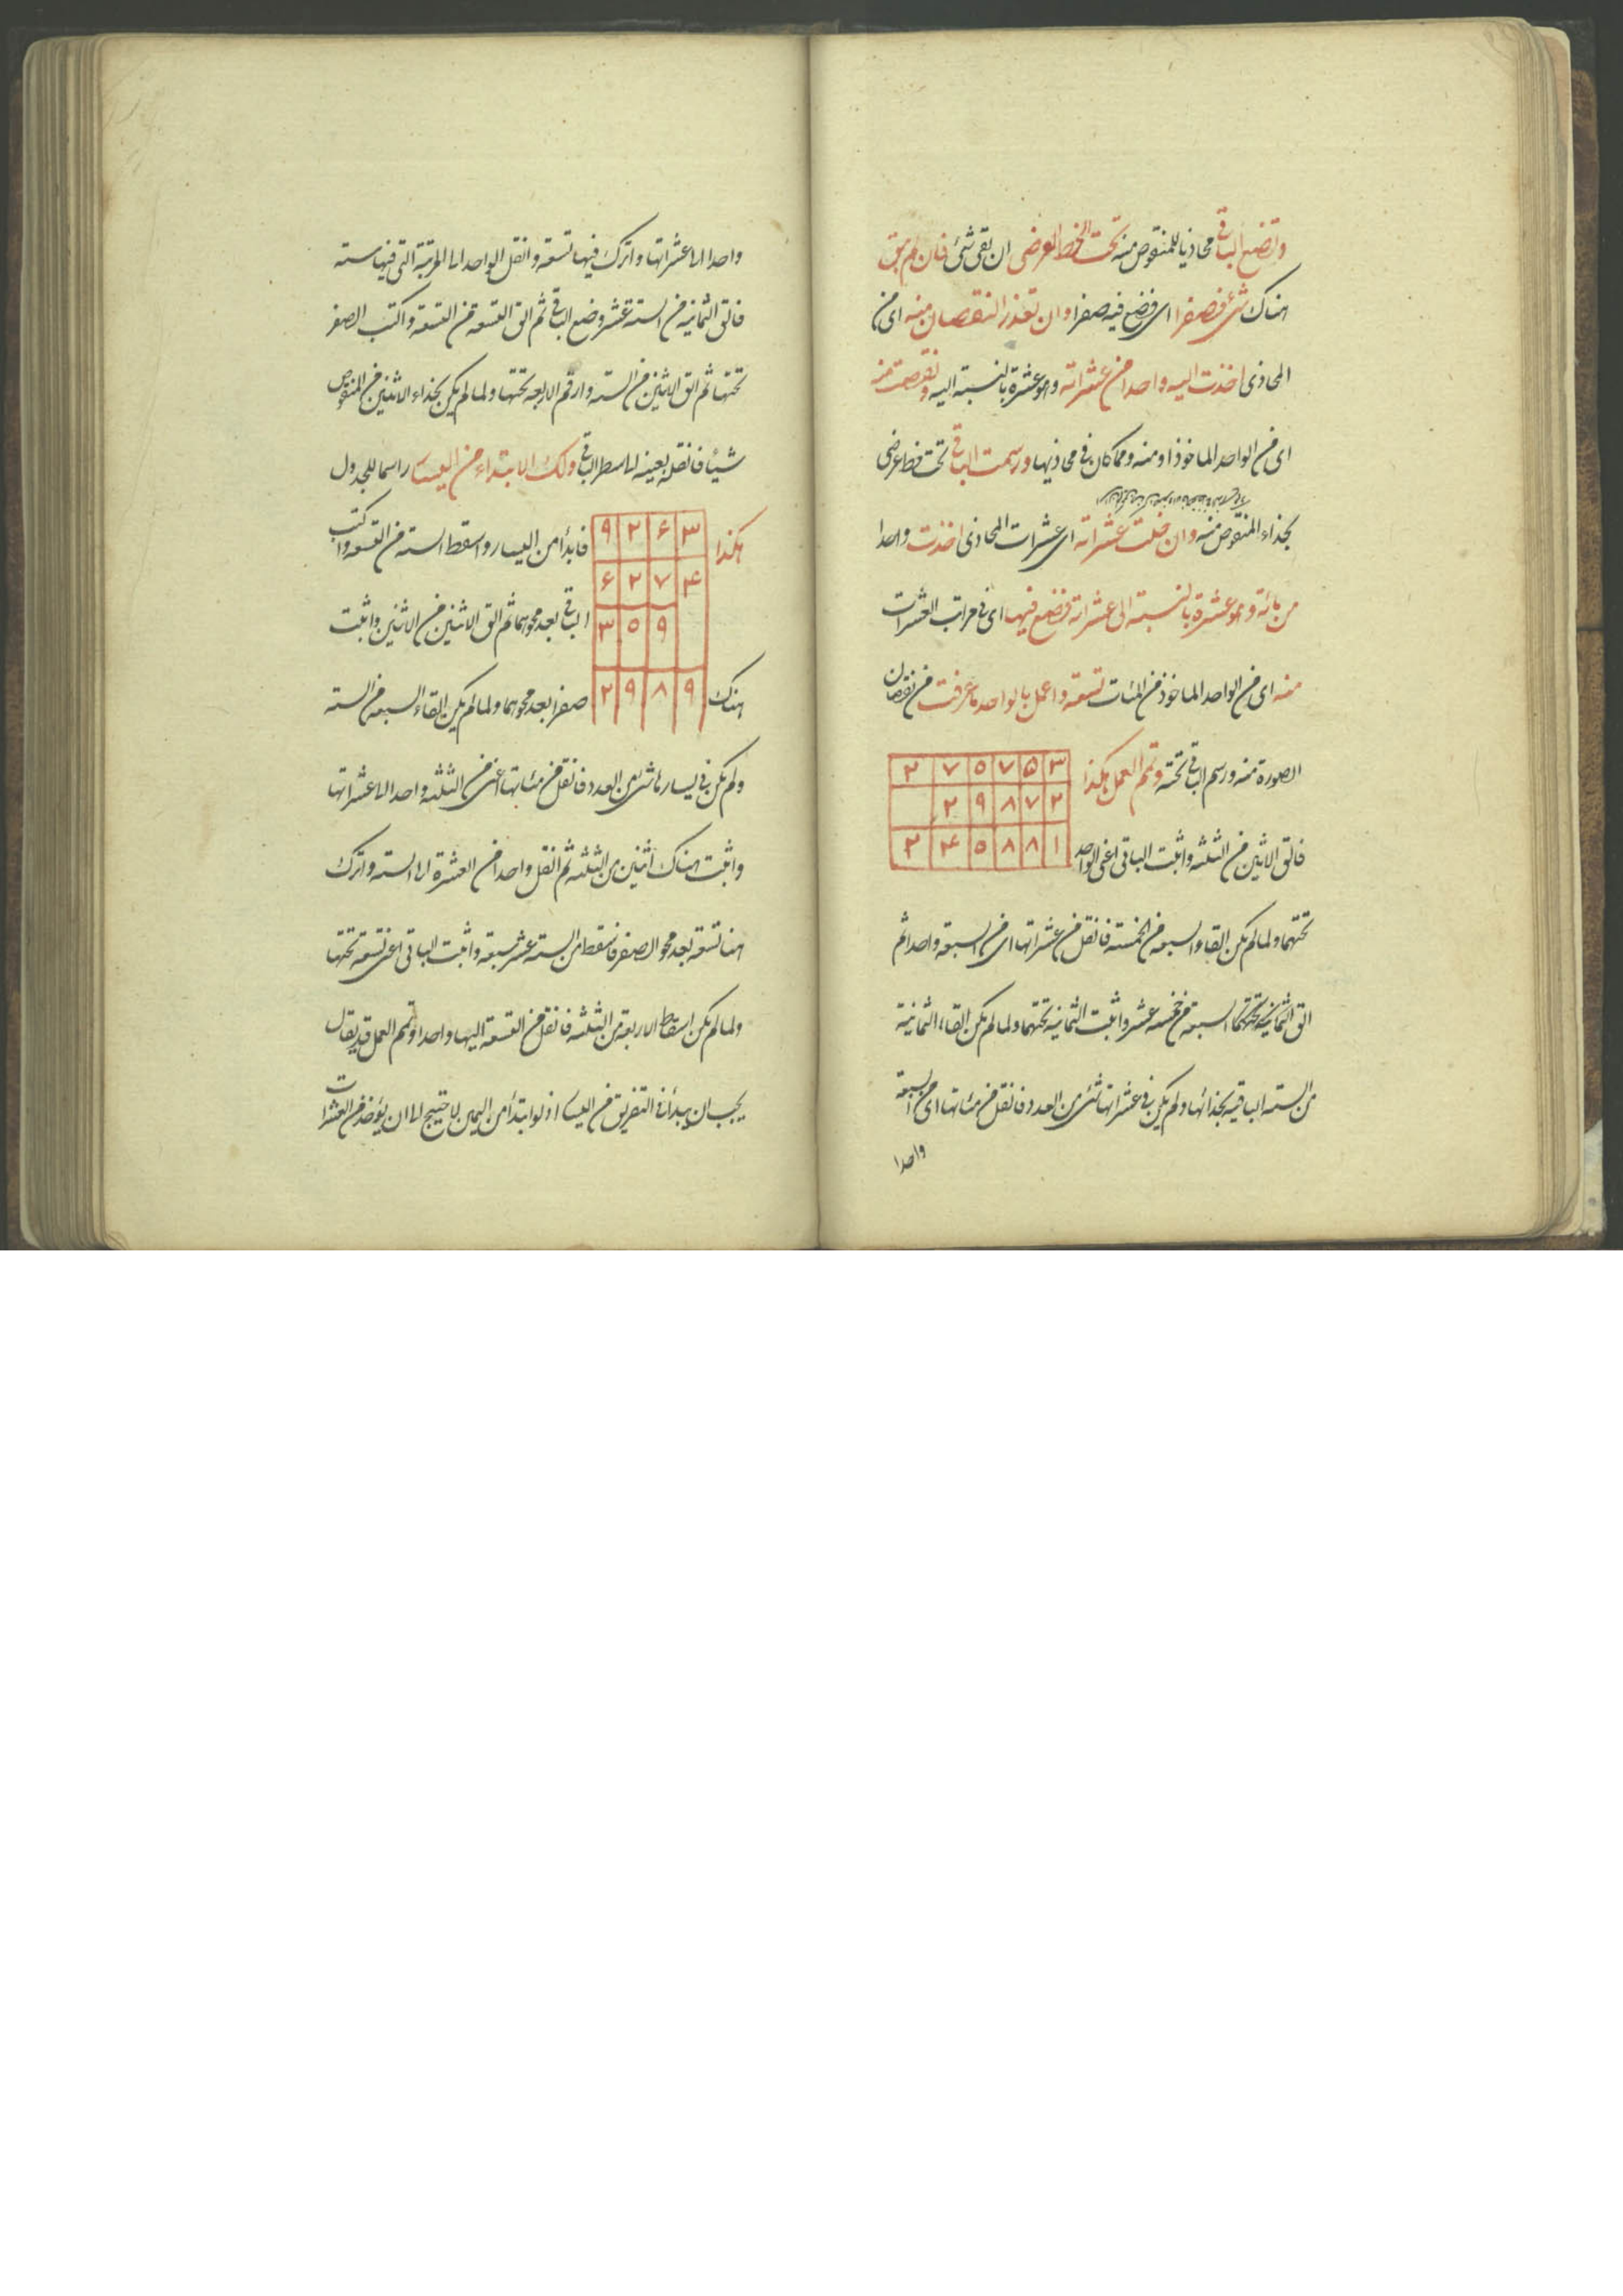 وتضع الباقي محاذيا للمنقوص منه تحت الخط العرضي ان بقي شئ فان لم يبق
هناك شئ فصفرا اى فضع فيه صفرا وان تعذر النقصان منه اى من
المحاذى اخذت اليه واحدا من عشراته وهو عشرة بالنسبة اليه ونقصت منه
اى من الواحد الماخوذ او منه ومما كان في محاذيها ورسمت الباقي تحت خط عرضى
بحذاء المنقوص منه وان خلت عشراته اى عشرات المحاذى اخذت واحدا
من مائة وهو عشرة بالنسبة الى عشراته فضع فيها اى في مراتب العشرات
منه اى من الواحد الماخوذ من المئات تسعة واعمل بالواحد ما عرفت من نقصان
الصورة منه ورسم الباقي تحته وتمم العمل هكذا
٢ ٧ ٥ ٧ ۵ ٣
٢ ٩ ٨ ٧ ٢
٢ ۴ ٥ ٨ ٨ ١
فالق الاثنين من الثلثه واثبت الباقى اعنى الواحد
تحتهما ولما لم يكن القاء السبعه من الخمسته فانقل من عشراتها اى من السبعة واحدا ثم
الق السبعة من خمسه عشر واثبت الثمانية تحتهما ولما لم يكن القاء الثمانية
من السته الباقية بحذائها ولم يكن في عشراتها شئ من العدد فانقل من مئاتها اى من السبعة
واحدا
واحدا الى عشراتها واترك فيها تسعة وانقل الواحد الى المرتبة التى فيها سته
فالق الثمانية من الستة عشر وضع الباقي ثم الق التسعه من التسعة واكتب الصفر
تحتها ثم الق الاثنين من السته وارقم الاربعه تحتها ولما لم يكن بحذاء الاثنين من المنقوص
شيئا فانقله بعينه الى سطر الباقي ولك الابتداء من اليسار راسما للجدول
هكذا
٩ ٢ ۶ ٣
۶ ٢ ٧ ۴
٣ ٥ ٩
٢ ٩ ٨ ٩
فابدأ من اليسار واسقط السته من التسعه واكتب
الباقي بعد محوهما ثم الق الاثنين من الاثنين واثبت
هناك صفرا بعد محوهما ولما لم يكن القاء السبعه من السته
ولم يكن في يسارها شئ من العدد فانقل من مئاتها اعنى من الثلثه واحدا الى عشراتها
واثبت هناك اثنين من الثلثه ثم انقل واحدا من العشرة الى السته واترك
هنا تسعة بعد محو الصفر فاسقط من السته عشر سبعة واثبت الباقى اعنى تسعة تحتها
ولما لم يكن اسقاط الاربعة من الثلثه فانقل من التسعة اليها واحدا وتمم العمل قد يقال
يجب ان يبدأ في التفريق من اليسار اذ لو ابتدأ من اليمين لاحتيج الى ان يؤخذ من العشرات